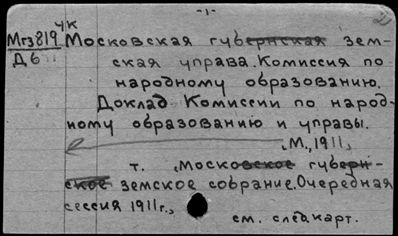 -1-
2
УК
Мгз819 Московская губернская зем-
Д6 ская управа. Комиссия по
народному образованию.
Доклад Комиссии по народ-
ному образованию и управы.
М., 1911,
т. , Московское губерн-
ское земское собрание. Очередная
сессия 1911 г.,
см. след карт.